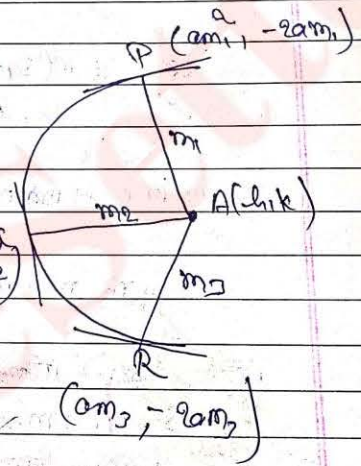 P (am₁², -2am₁)
m₁
A(h,k)
m₂
m₃
R
(am₃, -2am₃)